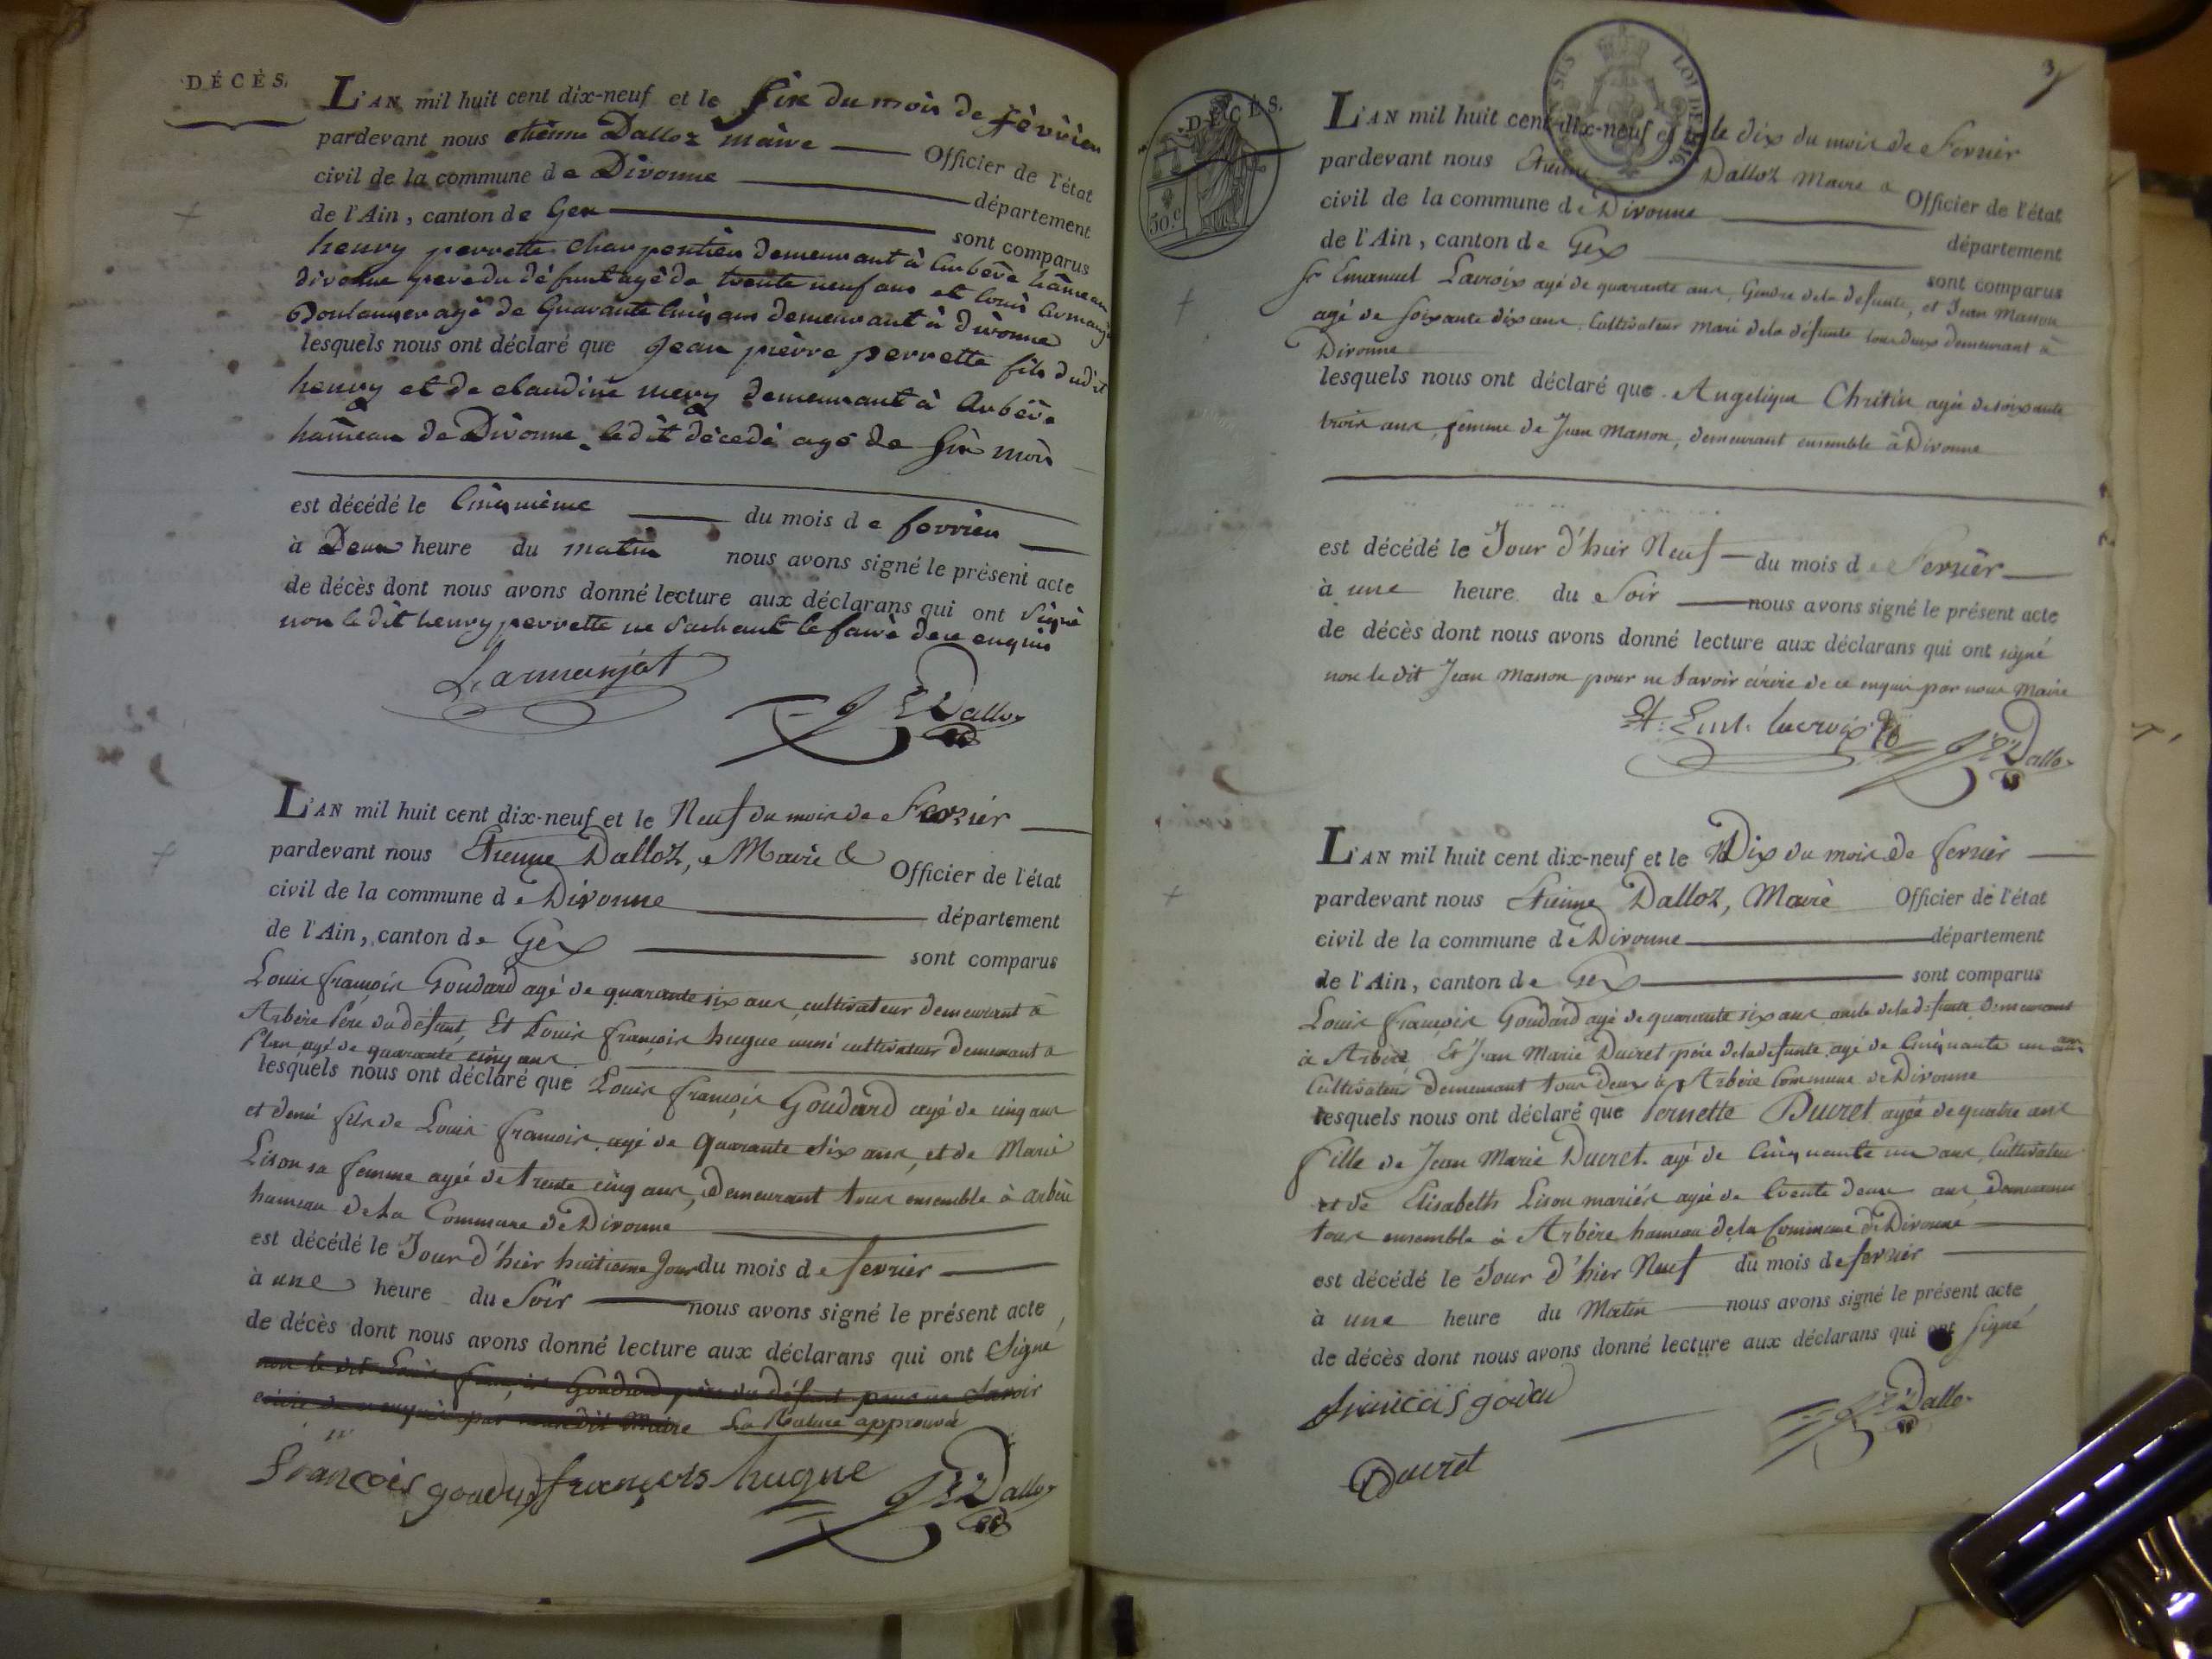 DÉCÈS.
L'AN mil huit cent dix-neuf et le six du mois de fèvrier
pardevant nous etiênne Dalloz maire Officier de l'état
civil de la commune de Divonne département
de l'Ain, canton de Gex sont comparus
henry perrette charpentier demeurant à Arbère hâmeau
divonne pere du défunt agé de trente neuf ans et louis Armanjat
Boulanger agé de Quarante Cinq ans demeurant à divonne
lesquels nous ont déclaré que Jean pièrre perrette fils dudit
henry et de claudine mery demeurant à Arbère
hâmeau de Divonne ledit décedé agé de six mois
est décédé le Cinquième du mois de fevrier
à Deux heure du matin nous avons signé le présent acte
de décès dont nous avons donné lecture aux déclarans qui ont signé
non le dit henry perrette ne sachant le faire de ce enquis
L. armanjat
E Dalloz
L'AN mil huit cent dix-neuf et le Neuf du mois de Fevrier
pardevant nous Etienne Dalloz, Maire & Officier de l'état
civil de la commune de Divonne département
de l'Ain, canton de Gex sont comparus
Louis françois Goudard agé de quarante six ans, cultivateur demeurant à
Arbère Père du défunt, Et Louis françois hugue aussi cultivateur demeurant à
Plan agé de quarante cinq ans
lesquels nous ont déclaré que Louis françois Goudard agé de cinq ans
et demi fils de Louis françois agé de Quarante Six ans, et de Marie
Lison sa femme agée de trente cinq ans, demeurant tous ensemble à arbère
hameau de la Commune de Divonne
est décédé le Jour d'hier huitieme Jour du mois de fevrier
à une heure du Soir nous avons signé le présent acte
de décès dont nous avons donné lecture aux déclarans qui ont Signé
non le dit Louis françois Goudard père du défunt pour ne savoir
écrire de ce enquis par nous dit Maire La Rature approuvée
françois françois hugue
E Dalloz
3
DÉCÈS.
50.c
LOI DE 1816
L'AN mil huit cent dix-neuf et le dix du mois de Fevrier
pardevant nous Etienne Dalloz Maire & Officier de l'état
civil de la commune de Divonne département
de l'Ain, canton de Gex sont comparus
Sr Emanuel Lacroix agé de quarante ans, Gendre de la défunte, et Jean Manon
agé de soixante dix ans Cultivateur mari de la défunte tous deux demeurant à
Divonne
lesquels nous ont déclaré que Angelique Chritin agée de soixante
trois ans, femme de Jean Manon, demeurant ensemble à Divonne
est décédé le Jour d'hier Neuf du mois de Fevrier
à une heure du Soir nous avons signé le présent acte
de décès dont nous avons donné lecture aux déclarans qui ont signé
non le dit Jean Manon pour ne Savoir écrire de ce enquis par nous Maire
lacroix
E Dalloz
L'AN mil huit cent dix-neuf et le Dix du mois de fevrier
pardevant nous Etienne Dalloz, Maire Officier de l'état
civil de la commune de Divonne département
de l'Ain, canton de Gex sont comparus
Louis françois Goudard agé de quarante six ans oncle de la défunte demeurant
à Arbère, Et Jean Marie Ducret père de la défunte agé de Cinquante un ans
Cultivateurs demeurant tous deux à Arbère Commune de Divonne
lesquels nous ont déclaré que Pernette Ducret agée de quatre ans
fille de Jean Marie Ducret agé de Cinquante un ans, Cultivateur
et de Elisabeth Lison mariés agée de trente deux ans, demeurant
tous ensemble à Arbère hameau de la Commune de Divonne
est décédé le Jour d'hier Neuf du mois de fevrier
à une heure du Matin nous avons signé le présent acte
de décès dont nous avons donné lecture aux déclarans qui ont signé
E Dalloz
Ducret